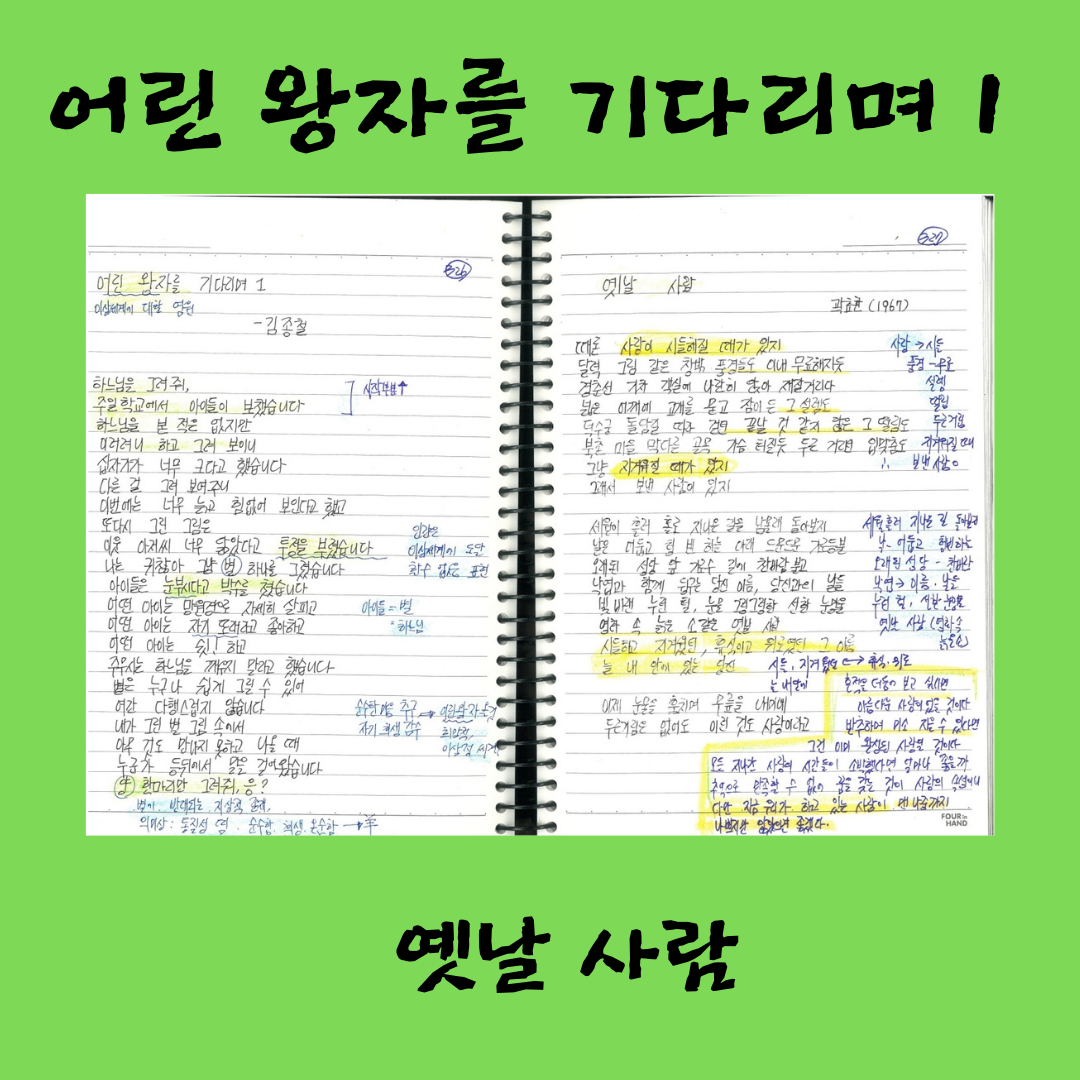 어린 왕자를 기다리며 1
326
어린 왕자를 기다리며 1
이상세계에 대한 염원
-김종철
하느님을 그려 줘,
주일학교에서 아이들이 보챘습니다
하느님을 본 적은 없지만
이러려니 하고 그려 보이니
십자가가 너무 크다고 했습니다
다른 걸 그려 보여주니
이번에는 너무 늙고 힘없어 보인다고 했고
또다시 그린 그림은
이웃 아저씨 너무 닮았다고 투정을 부렸습니다
나는 귀찮아 그냥 (별) 하나를 그렸습니다
아이들은 눈부시다고 박수를 쳤습니다
어떤 아이는 망원경으로 자세히 살피고
어떤 아이는 자기 또래라고 좋아하고
어떤 아이는 쉿! 하고
주무시는 하느님을 깨우지 말라고 했습니다
별은 누구나 쉽게 그릴 수 있어
여간 다행스럽지 않습니다
내가 그린 별 그림 속에서
아무 것도 만나지 못하고 나올 때
누군가 등뒤에서 말을 걸어왔습니다
(羊) 한마리만 그려줘, 응?
시작부분↑
이상세계에 도달
아이들=별
하느님
순수한 마음 추구 → 어린왕자
자기 희생 감수
동질성, 순수함, 희생, 온순함 → 羊
327
옛날 사람
곽효환 (1967)
때론 사랑이 시들해질 때가 있지
달력 그림 같은 창밖 풍경들도 이내 무료해지듯
경춘선 기차 객실에 나란히 앉아 재잘거리다
넓은 어깨에 고개를 묻고 잠이 든 그 설렘도
덕수궁 돌담길 따라 걷던 끝날 것 같지 않은 그 떨림도
북촌 마을 막다른 골목 가슴 터질듯 두근거리던 입맞춤도
그냥 지겨워질 때가 있지
그래서 보낸 사람이 있지
세월이 흘러 홀로 지나온 길을 남몰래 돌아보지
날은 어둡고 텅 빈 하늘 아래 드문드문 가로등불
오래된 성당 앞 가로수 길에 찬바람 불고
낙엽과 함께 뒹구는 당신 이름, 당신과의 날들
빛바랜 누런 털, 눈물 그렁그렁한 선한 눈망울
영화 속 늙은 소 같은 옛날 사람
시들하고 지겨웠던, 휴식이고 위로였던 그 이름
늘 내 안에 있는 당신
이제 눈물을 훔치며 무릎을 내미네
두근거림은 없어도 이런 것도 사랑이라고
사랑 → 시듦
풍경 - 무료
설렘
떨림
두근거림
지겨워질 때
∴ 보낸 사람이
세월 흘러 지나온 길 돌아보며
오래된 성당 - 찬바람
낙엽 → 이름, 날들
누런 털, 선한 눈망울
옛날 사람 (영화속
늙은소)
시듦, 지겨웠던 ↔ 휴식, 위로
늘 내안에
흔적은 더듬어 보고 싶다면
아름다운 사랑이었을 것이다
반추하며 미소 지을 수 있다면
그건 이미 완성된 사랑일 것이다
모든 지나간 사랑의 시간들이 소박했다면 얼마나 좋을까
추억으로 만족할 수 없어 꿈을 꾸는 것이 사랑의
다만 지금 우리가 하고 있는 사랑이 맨 나중까지
나쁘지만 않았으면 좋겠다.
FOUR in
HAND
옛날 사람